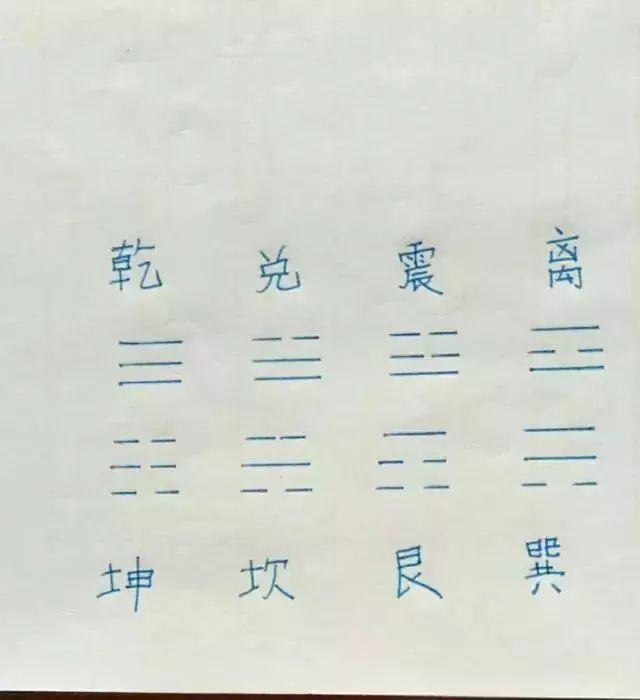 乾 兑 震 离
坤 坎 艮 巽